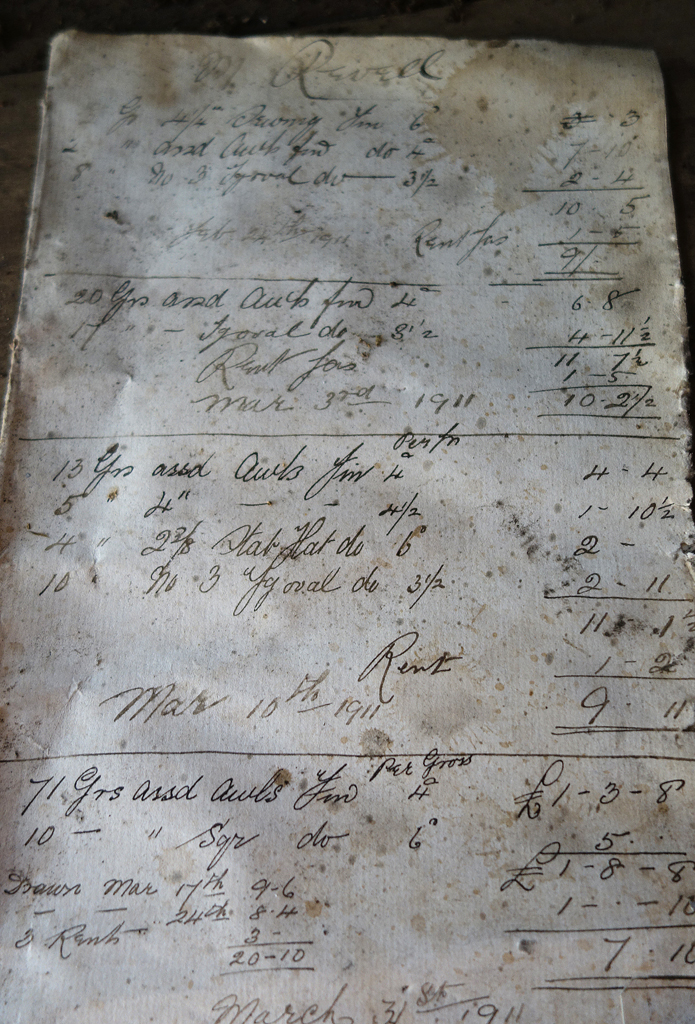 Revell
Grs 4¼" Sewing fin 6ᵈ 3
" assd Awls fin do 4ᵈ 7 - 10
8 " No 3 do 3½ 2 - 4
10 5
Feb 24th 1911 Rent
9/
20 Grs assd Awls fin 4ᵈ 6 8
17 " - do 3½ 4 - 11½
Rent 11 7½
1 - 5
Mar 3rd 1911 10 - 2½
Per
13 Grs assd Awls fin 4ᵈ 4 - 4
5 " 4" - - 4½ 1 - 10½
4 " 2⅜ do 6ᵈ 2 -
10 " No 3 do 3½ 2 - 11
11 1½
Rent 1 - 2
Mar 10th 1911 9 11
Per Gross
71 Grs assd awls Fin 4ᵈ £1 - 3 - 8
10 - " Sqr do 6ᵈ 5
£1 - 8 - 8
Drawn Mar 17th 9 - 6
- - 24th 8 - 4 1 - - - 10
3 Rents 3 -
20 - 10 7 10
March 31st 1911